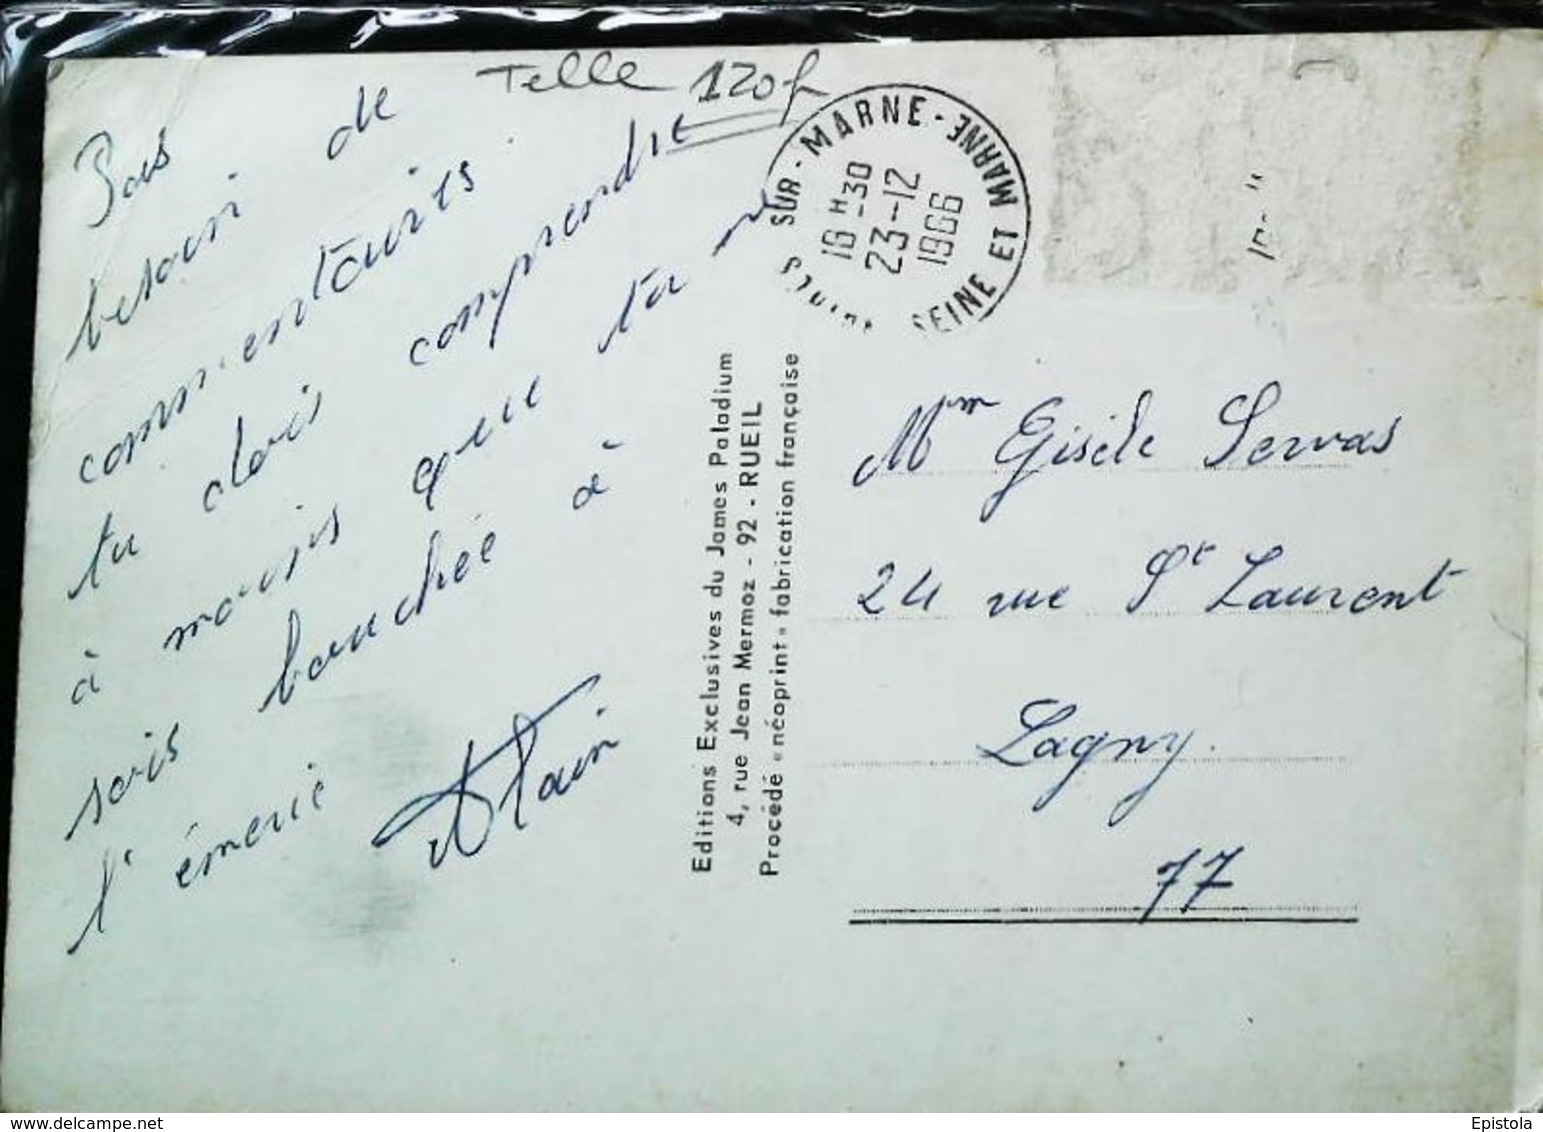 Telle 120f
Pas de
besoin
commentaires
tu dois comprendre
à mouins que tu n
sois bouchée à
l'émerie
Alain
SUR-MARNE - SEINE ET MARNE
18 H-30
23-12
1966
Editions Exclusives du James Paladium
4, rue Jean Mermoz - 92 - RUEIL
Procédé « néoprint » fabrication française
Mme Gisèle Servas
24 rue St Laurent
Lagny.
77
Epistola